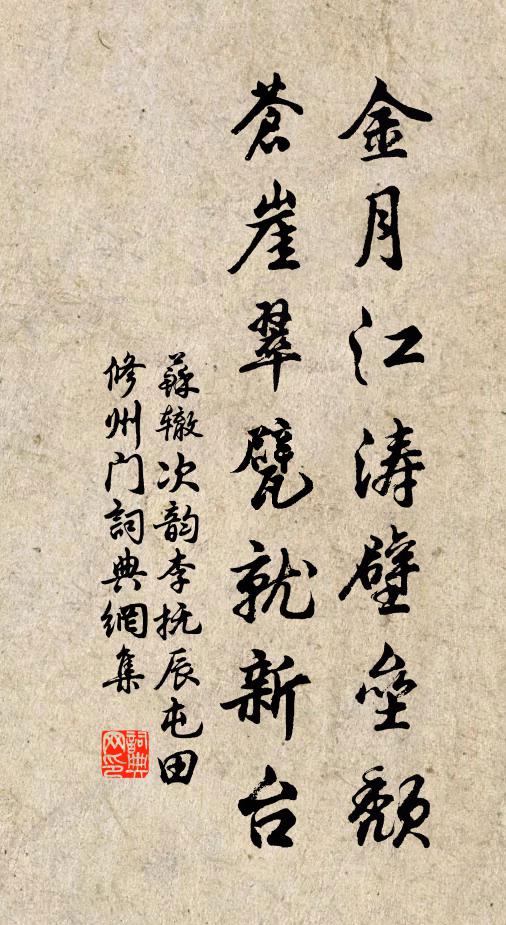 金月江涛壁垒颓
蒼崖翠甓就新台
蘇辙次韵李抚辰屯田
修州门詞典網集
詞典
网印